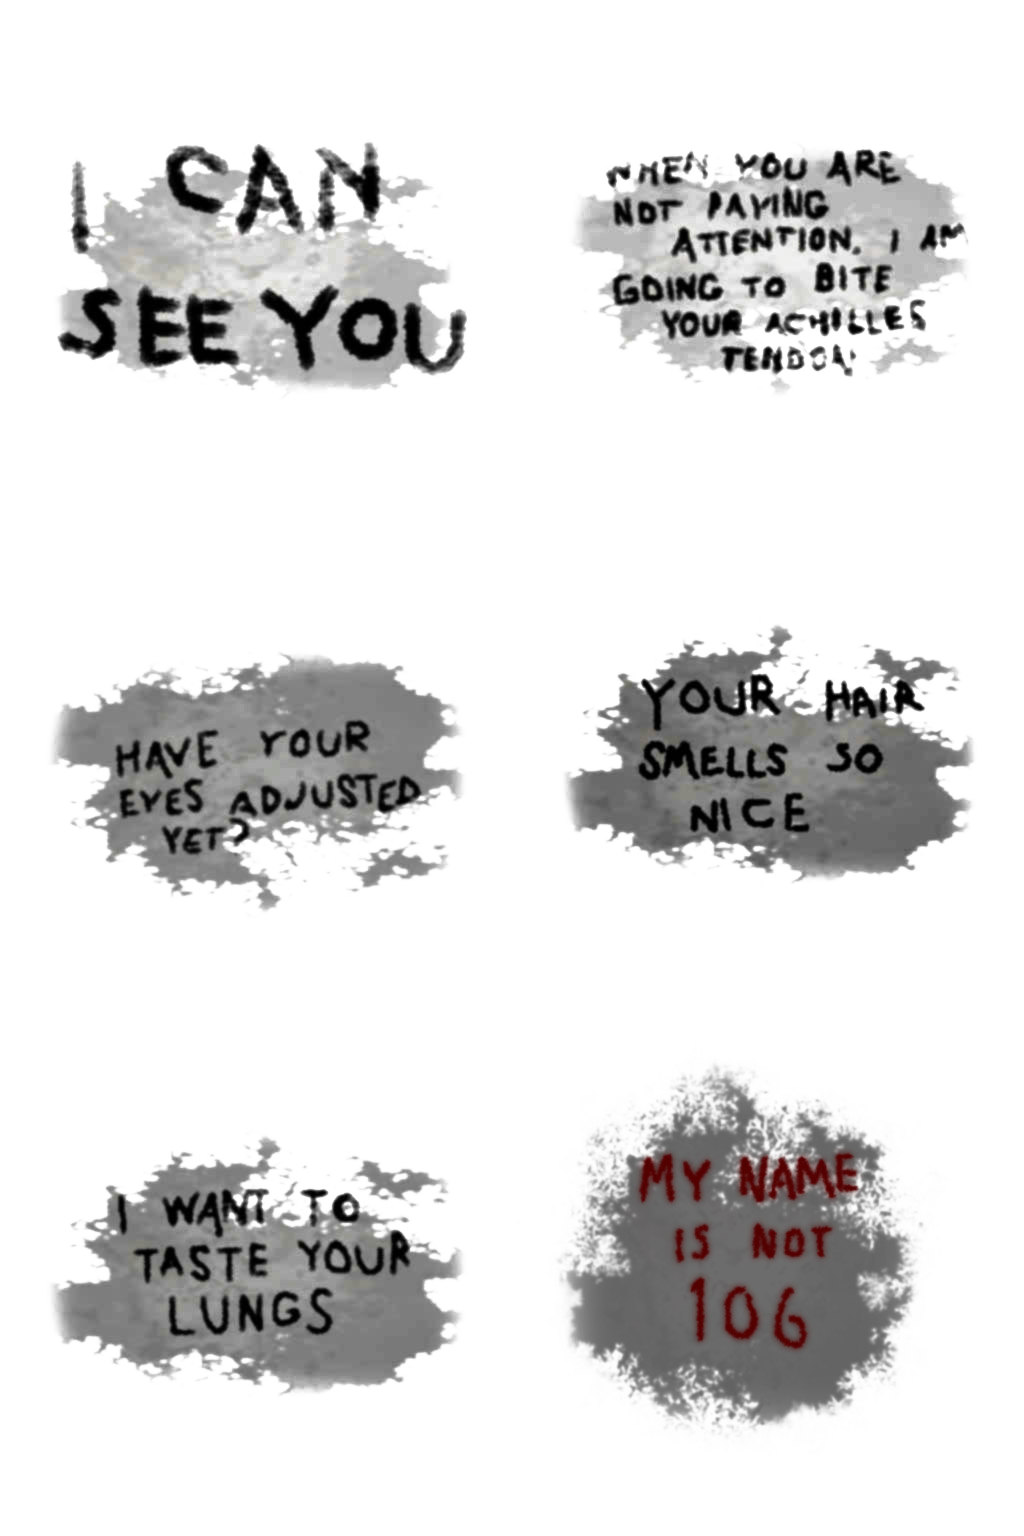 I CAN
SEE YOU
WHEN YOU ARE
NOT PAYING
ATTENTION, I AM
GOING TO BITE
YOUR ACHILLES
TENDON
HAVE YOUR
EYES ADJUSTED
YET?
YOUR HAIR
SMELLS SO
NICE
I WANT TO
TASTE YOUR
LUNGS
MY NAME
IS NOT
106